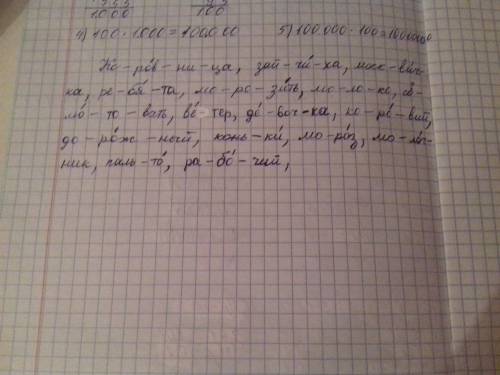 1000 100
4) 100 · 1000 = 100000 5) 100.000 · 100 = 10000000
Ко-ро́в-ни-ца, зай-чи́-ха, моск-ви́ч-
ка, ре-бя́-та, мо-ро-зить, мо-ло-ко,
мо́-то-вать, ве́-тер, де́-воч-ка, ко-ро́-вий,
до-ро́ж-ный, конь-ки́, мо-ро́з, мо-
ник, паль-то́, ра-бо́-чий,